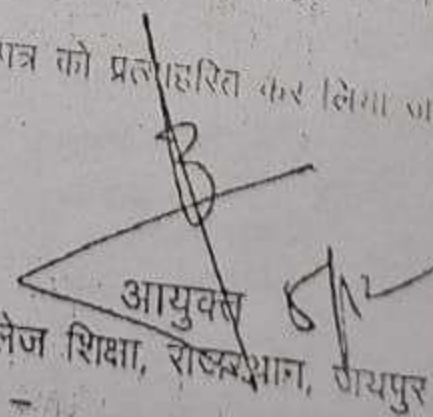 पत्र को प्रत्याहरित कर लिया
आयुक्त
लेज शिक्षा, राजस्थान, जयपुर